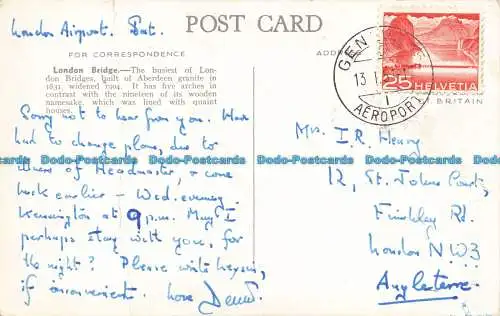 London Airport. Sat.
POST CARD
FOR CORRESPONDENCE
ADDRESS
London Bridge.—The busiest of Lon-
don Bridges, built of Aberdeen granite in
1831, widened 1904. It has five arches in
contrast with the nineteen of its wooden
namesake, which was lined with quaint
houses.
Sorry not to hear from you. Have
had to change plans, due to
illness of Headmaster, & come
back earlier – Wed. evening.
Kennington at 9 p.m. May I
perhaps stay with you, for
the night? Please write
if inconvenient. Love
GEN
13. I
AÉROPORT
25 HELVETIA
BRITAIN
Mrs. I.R. Henry
12, St. Johns Court,
Finchley Rd.
London NW3
Angleterre.
Dodo-Postcards Dodo-Postcards Dodo-Postcards Dodo-Postcards
Dodo-Postcards Dodo-Postcards Dodo-Postcards Dodo-Postcards